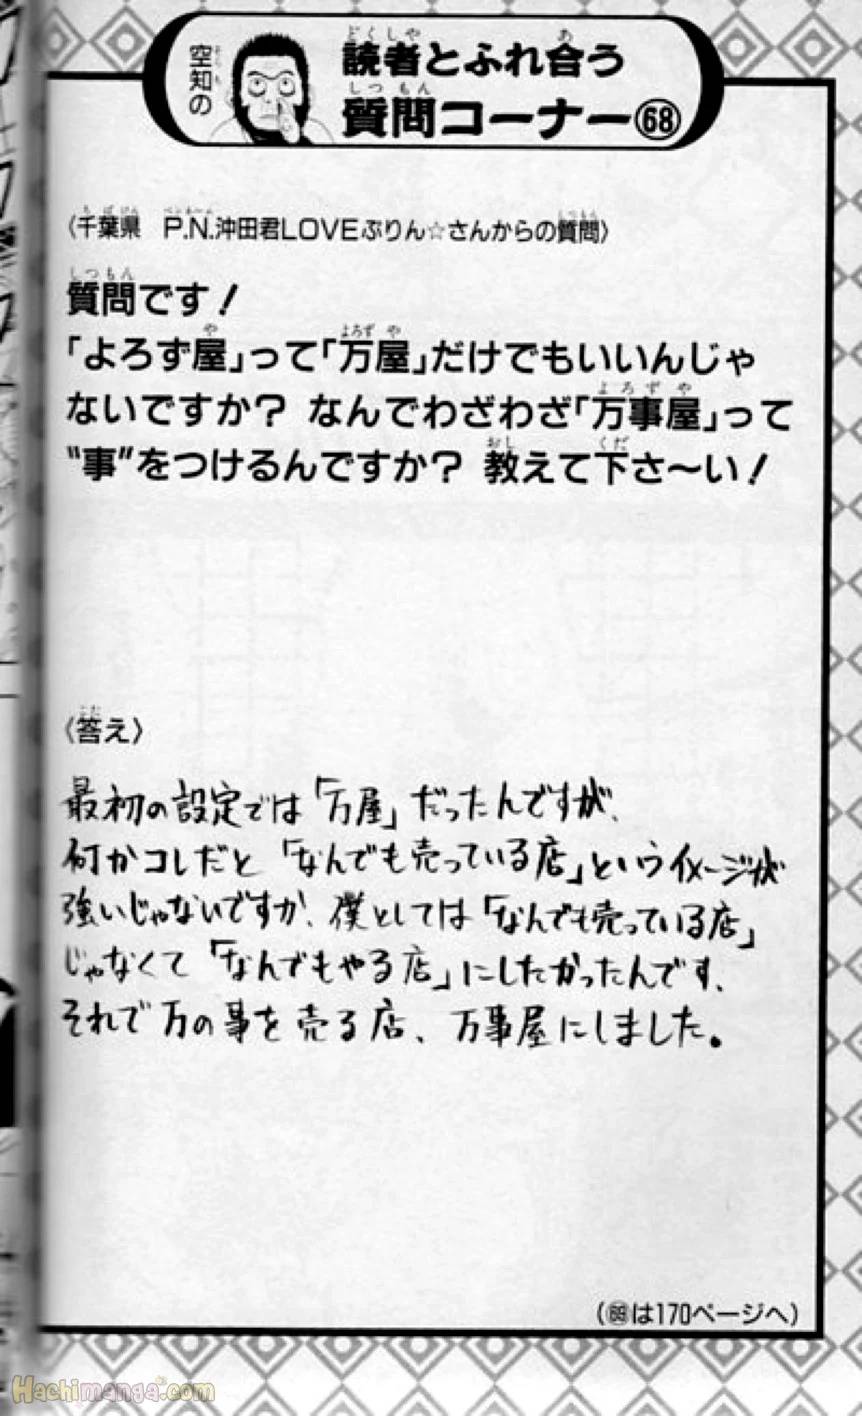 空知の
読者とふれ合う
質問コーナー68
〈千葉県 P.N.沖田君LOVEぷりん☆さんからの質問〉
質問です！
「よろず屋」って「万屋」だけでもいいんじゃ
ないですか？ なんでわざわざ「万事屋」って
“事”をつけるんですか？ 教えて下さ〜い！
〈答え〉
最初の設定では「万屋」だったんですが、
何かコレだと「なんでも売っている店」というイメージが
強いじゃないですか、僕としては「なんでも売っている店」
じゃなくて「なんでもやる店」にしたかったんです、
それで万の事を売る店、万事屋にしました。
(69は170ページへ)
Hachimanga.com